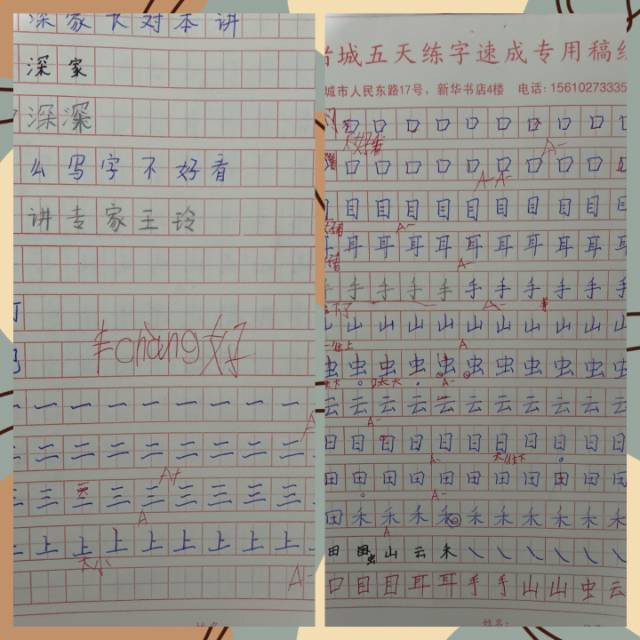 深家长对本讲
深家
深深
么写字不好看
讲专家王玲
非cháng好
一一一一一一一一
二二二二二二二二
三三三三三三三三
A+
上上上上上上上上
A
太小
A-
城五天练字速成专用稿纸
城市人民东路17号,新华书店4楼 电话:15610273335
口口口口口口口口口口
不好看
A-
口口口口口口口口口口
A-A-
目目目目目目目目目目
A-
耳耳耳耳耳耳耳耳耳耳
A-
手手手手手手手手手手
A-
山山山山山山山山山山
A
虫虫虫虫虫虫虫虫虫虫
A-
云云云云云云云云云云
A-
日日日日日日日日日日
A-
田田田田田田田田田田
A-
禾禾禾禾禾禾禾禾禾禾
A
田田虫山云禾
口目目耳耳手手山山虫云